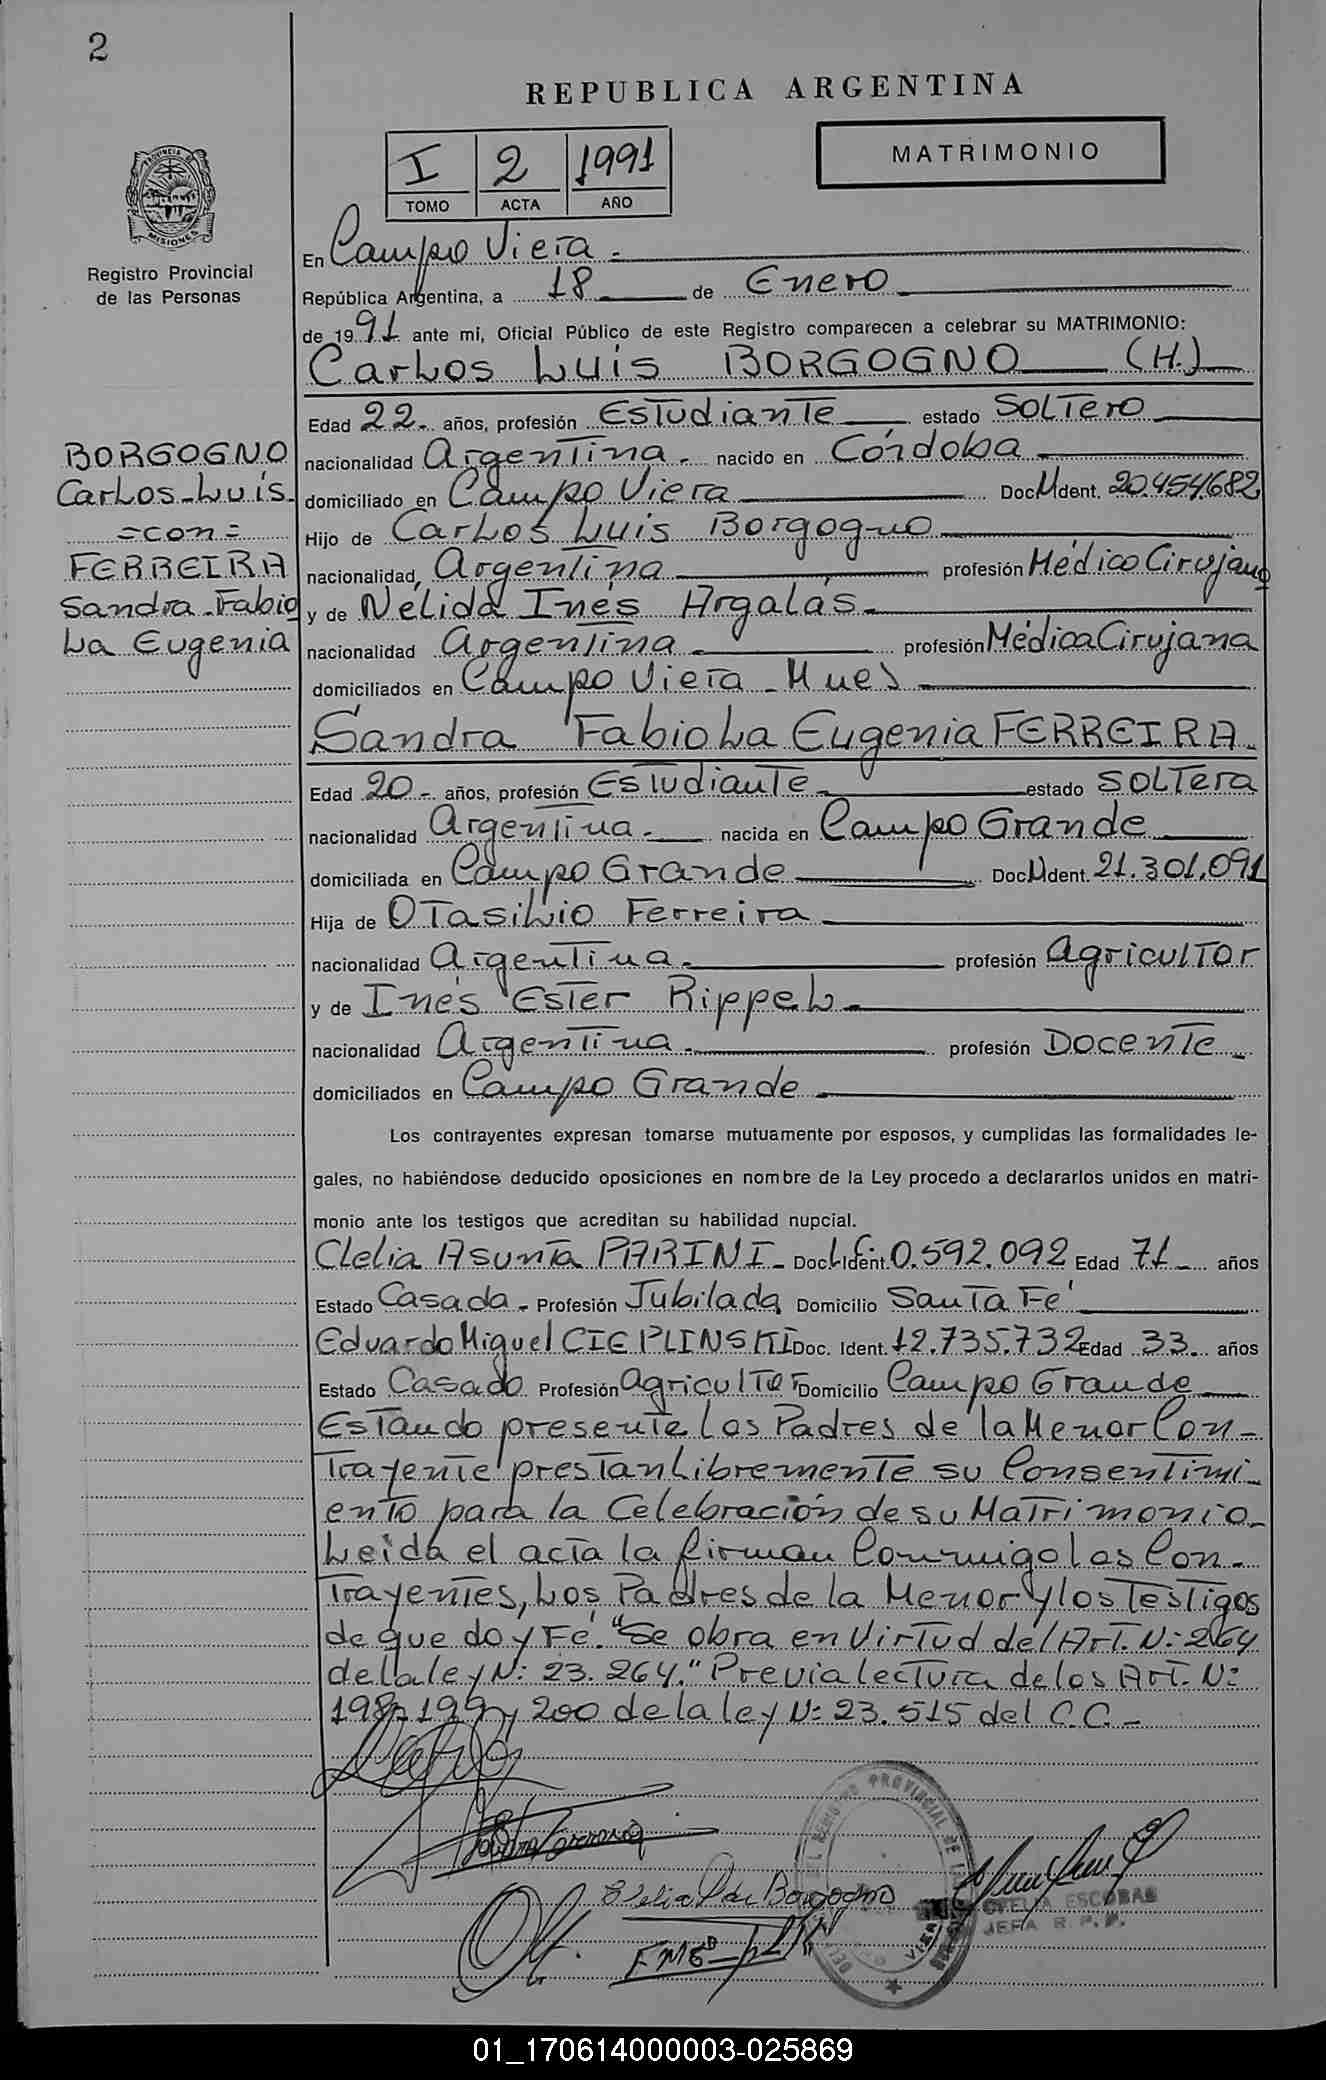 2
REPUBLICA ARGENTINA
I 2 1991
TOMO ACTA AÑO
MATRIMONIO
PROVINCIA DE
MISIONES
Registro Provincial
de las Personas
En Campo Viera.
República Argentina, a 18 de Enero
de 1991 ante mi, Oficial Público de este Registro comparecen a celebrar su MATRIMONIO:
Carlos Luis BORGOGNO (H.)
Edad 22. años, profesión Estudiante estado Soltero
BORGOGNO
Carlos-Luis.
=con=
FERREIRA
Sandra-Fabio
La Eugenia
nacionalidad Argentina. nacido en Córdoba
domiciliado en Campo Viera Doc. Ident. 20.454682
Hijo de Carlos Luis Borgogno
nacionalidad Argentina profesión Médico Cirujano
y de Nélida Inés Argalás.
nacionalidad Argentina profesión Médica Cirujana
domiciliados en Campo Viera - Mnes
Sandra Fabiola Eugenia FERREIRA.
Edad 20- años, profesión Estudiante estado Soltera
nacionalidad Argentina. nacida en Campo Grande
domiciliada en Campo Grande Doc. Ident. 21.301.091
Hija de Otasilvio Ferreira
nacionalidad Argentina. profesión Agricultor
y de Inés Ester Rippel.
nacionalidad Argentina. profesión Docente
domiciliados en Campo Grande
Los contrayentes expresan tomarse mutuamente por esposos, y cumplidas las formalidades le-
gales, no habiéndose deducido oposiciones en nombre de la Ley procedo a declararlos unidos en matri-
monio ante los testigos que acreditan su habilidad nupcial.
Clelia Asunta PARINI- Doc. Ident. 0.592.092 Edad 71 años
Estado Casada. Profesión Jubilada Domicilio Santa Fé
Eduardo Miguel CIEPLINSKI Doc. Ident. 12.735.732 Edad 33. años
Estado Casado Profesión Agricultor Domicilio Campo Grande
Estando presente los Padres de la Menor Con-
trayente prestan libremente su Consentimi-
ento para la Celebración de su Matrimonio.
Leida el acta la firman Conmigo los Con-
trayentes, Los Padres de la Menor y los Testigos
de que doy Fé. "Se obra en Virtud del Art. N: 264
de la ley N: 23.264." Previa lectura de los Art. N:
198-199 y 200 de la ley N: 23.515 del C.C.-
Clelia P. de Borgogno
STELLA ESCOBAR
JEFA R.P.P.
01_170614000003-025869